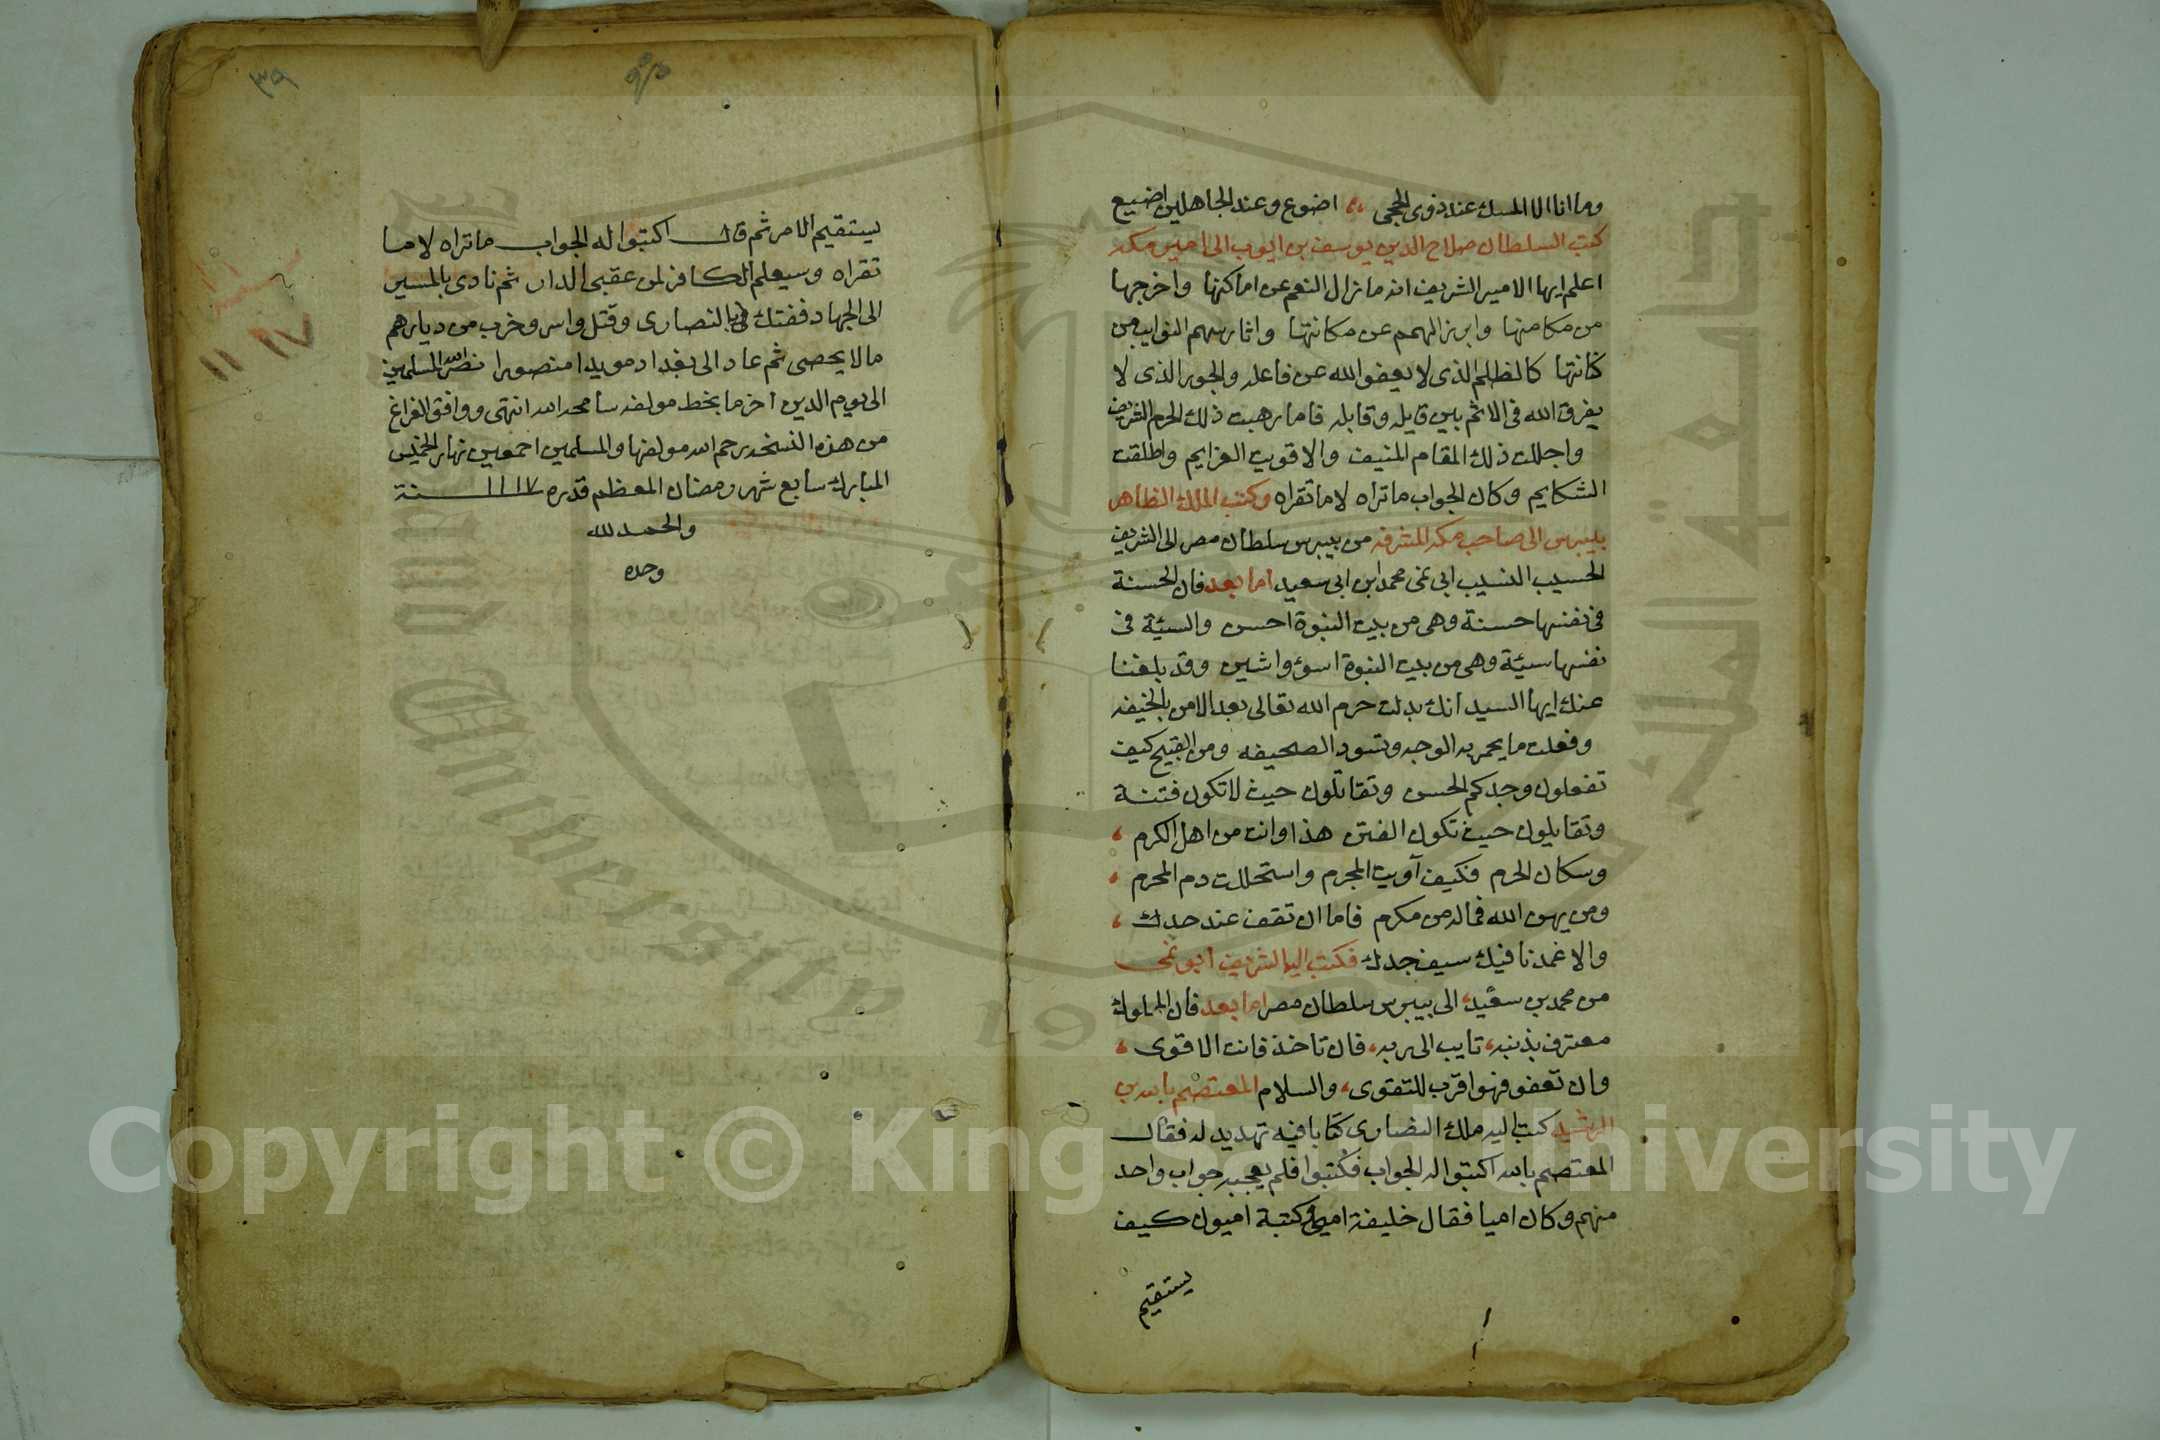 وما انا الا المسك عند ذوي الحجى ،، اضوع وعند الجاهلين اضيع
كتب السلطان صلاح الدين يوسف بن ايوب الى امير مكه
اعلم ايها الامير الشريف انه ما نزال النعم عن اماكنها واخرجها
من مكامنها وابرز الهمم عن مكانتها واثار سهم النوايب من
كنانتها كالظلم الذي لا يعفو الله عن فاعله والجور الذي لا
يفرق الله في الاثم بين قايله وقابله فاما رهبت ذلك الحرم الشريف
واجللت ذلك المقام المنيف والا قويت العزايم واطلقت
الشكايم وكان الجواب ما تراه لا ما تقراه وكتب الملك الظاهر
بيبرس الى صاحب مكه المشرفه من بيبرس سلطان مصر الى الشريف
الحسيب النسيب ابي نمي محمد ابن ابي سعيد اما بعد فان الحسنة
في نفسها حسنة وهي من بيت النبوة احسن والسيئة في
نفسها سيئة وهي من بيت النبوة اسوء واشين وقد بلغنا
عنك ايها السيد انك بدلت حرم الله تعالى بعد الامن بالخيفه
وفعلت ما يحمر به الوجه وتسود الصحيفه ومن القبيح كيف
تفعلون وجدكم الحسن وتقاتلون حيث لا تكون فتنة
وتقايلون حيث تكون الفتن هذا وانت من اهل الكرم ،
وسكان الحرم فكيف آويت المجرم واستحللت دم المحرم ،
ومن يهن الله فماله من مكرم فاما ان تقف عند حدك ،
والا غمدنا فيك سيف جدك فكتب اليه الشريف ابو نمي
من محمد بن سعيد، الى بيبرس سلطان مصر اما بعد فان المملوك
معترف بذنبه، تايب الى ربه، فان تاخذ فانت الاقوى ،
وان تعفو فهو اقرب للتقوى، والسلام المعتصم بالله بن
الرشيد كتب اليه ملك النصارى كتابا فيه تهديد له فقال
المعتصم بالله اكتبوا له الجواب فكتبوا فلم يعجبه جواب واحد
منهم وكان اميا فقال خليفة امي وكتبة اميون كيف
يستقيم
٣٩
يستقيم الامر ثم قال اكتبوا له الجواب ما تراه لا ما
تقراه وسيعلم الكافر لمن عقبى الدار ثم نادى بالمسير
الى الجهاد ففتك بالنصارى وقتل واسر وخرب من ديارهم
ما لا يحصى ثم عاد الى بغداد مويدا منصورا نصر الله المسلمين
الى يوم الدين اخر ما بخط مولفه سامحه الله انتهى ووافق الفراغ
من هذه النسخه رحم الله مولفها والمسلمين اجمعين نهار الخميس
المبارك سابع شهر رمضان المعظم قدره ١١١٧ سنة
والحمد لله
وحده
١١١٧
Copyright © King Saud University